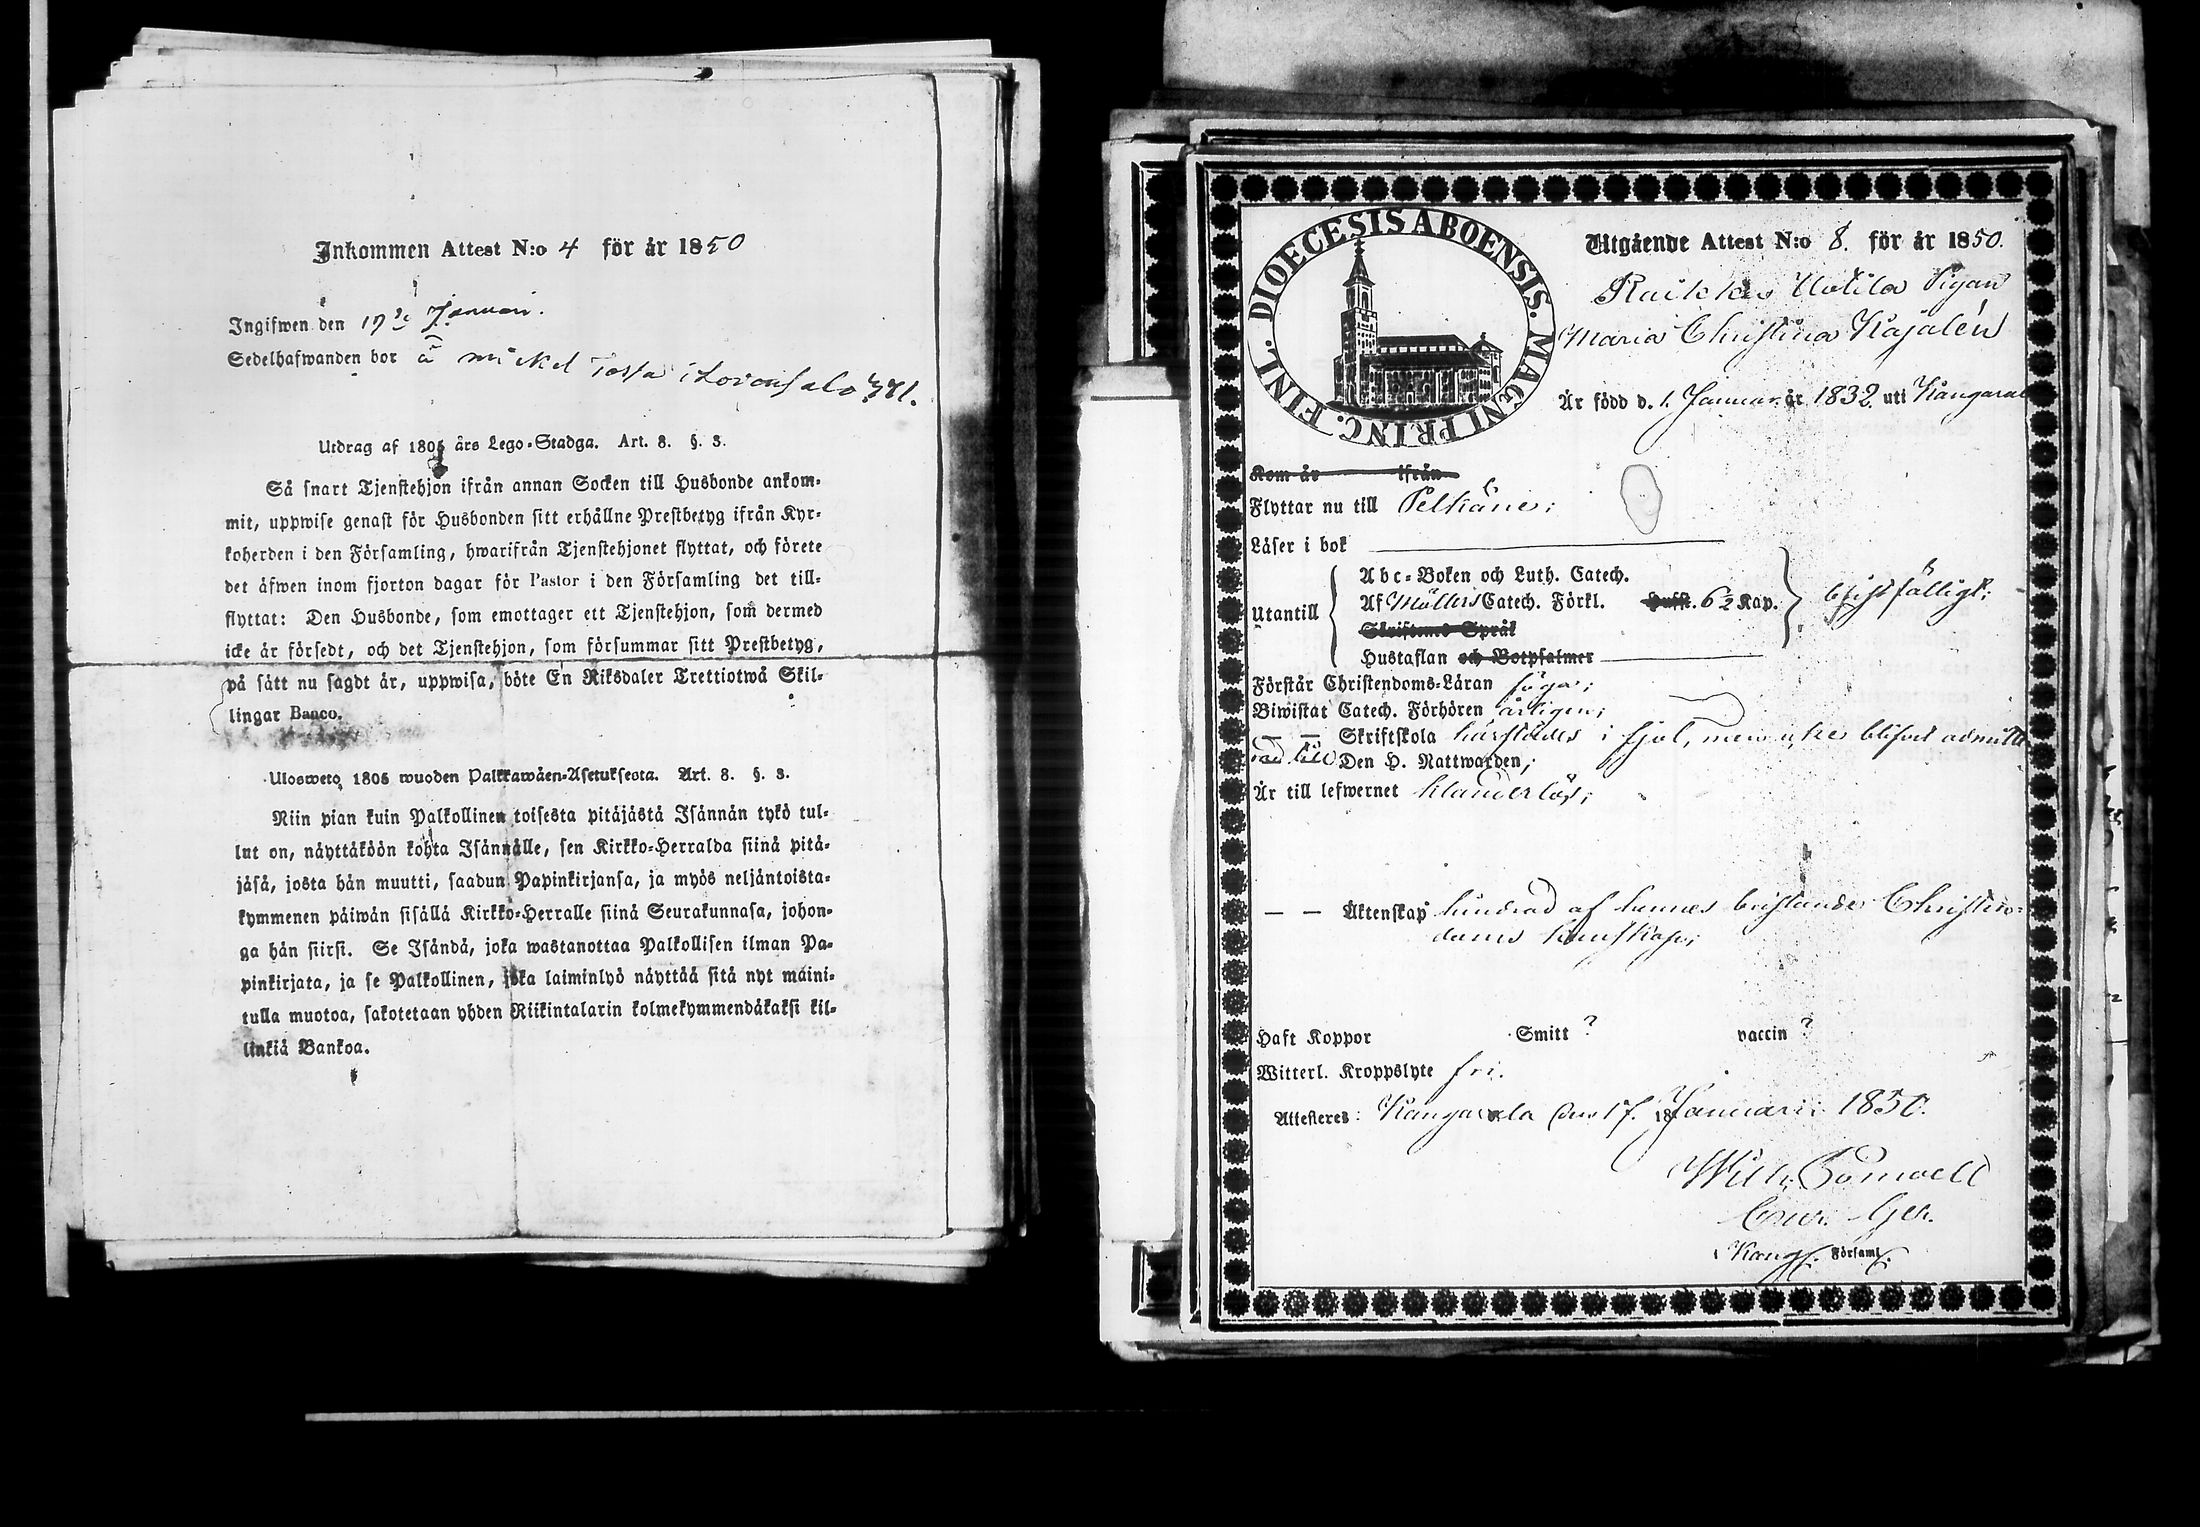 Inkommen Attest N:o 4 för år 1850
Ingifwen den 17 Januari.
Sedelhafwanden bor å Mickel Tossa i
Utdrag af 1805 års Lego-Stadga. Art. 8. §. 3.
Så snart Tjenstehjon ifrån annan Socken till Husbonde ankom-
mit, uppwise genast för Husbonden sitt erhållne Prestbetyg ifrån Kyr-
koherden i den Församling, hwarifrån Tjenstehjonet flyttat, och förete
det äfwen inom fjorton dagar för Pastor i den Församling det till-
flyttat: Den Husbonde, som emottager ett Tjenstehjon, som dermed
icke är försedt, och det Tjenstehjon, som försummar sitt Prestbetyg,
på sätt nu sagdt är, uppwisa, böte En Riksdaler Trettiotwå Skil-
lingar Banco.
Ulosweto 1805 wuoden Palkkawäen-Asetuksesta. Art. 8. §. 3.
Niin pian kuin Palkollinen toisesta pitäjästä Isännän tykö tul-
lut on, näyttäköön kohta Isännälle, sen Kirkko-Herralda siinä pitä-
jäsä, josta hän muutti, saadun Papinkirjansa, ja myös neljäntoista-
kymmenen päiwän sisällä Kirkko-Herralle siinä Seurakunnasa, johon-
ga hän siirsi. Se Isändä, joka wastanottaa Palkollisen ilman Pa-
pinkirjata, ja se Palkollinen, joka laiminlyö näyttää sitä nyt maini-
tulla muotoa, sakotetaan yhden Riikintalarin kolmekymmendäkaksi kil-
linkiä Bankoa.
DIOECESIS ABOENSIS. MAGNI PRINC. FINL.
Utgående Attest N:o 8. för år 1850.
Raikku Uotila Pigan
Maria Christina Kajalén
Är född d. 1. Januari år 1832. uti Kangasala
Kom år ifrån
Flyttar nu till Pelkäne;
Läser i bok
Utantill
Abc-Boken och Luth. Catech.
Af Möllers Catech. Förkl. Hufst. 6½ Kap.
Skriftenes Språk
Hustaflan och Botpsalmer
bristfälligt;
Förstår Christendoms-Läran föga;
Biwistat Catech. Förhören årligen;
— — Skriftskola härstädes i fjol, men icke blifvit admitte-
rad till Den H. Nattwarden;
Är till lefwernet klanderlös;
— — Äktenskap hindrad af hennes bristande Christen-
doms kunskap;
Haft Koppor Smitt ? vaccin ?
Witterl. Kroppslyte fri.
Attesteras: Kangasala den 17. 18 Januari 1850.
Wilh.
i Kang. Församl.